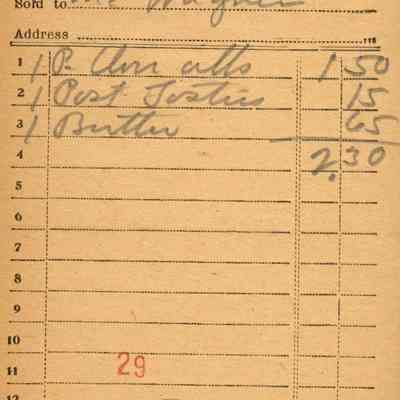 Sold to Mr Wagner
Address 116
1 1 P. Over alls 1 50
2 1 Post Tosties 15
3 1 Butter 65
4 2.30
5
6
7
8
9
10
11 29
12